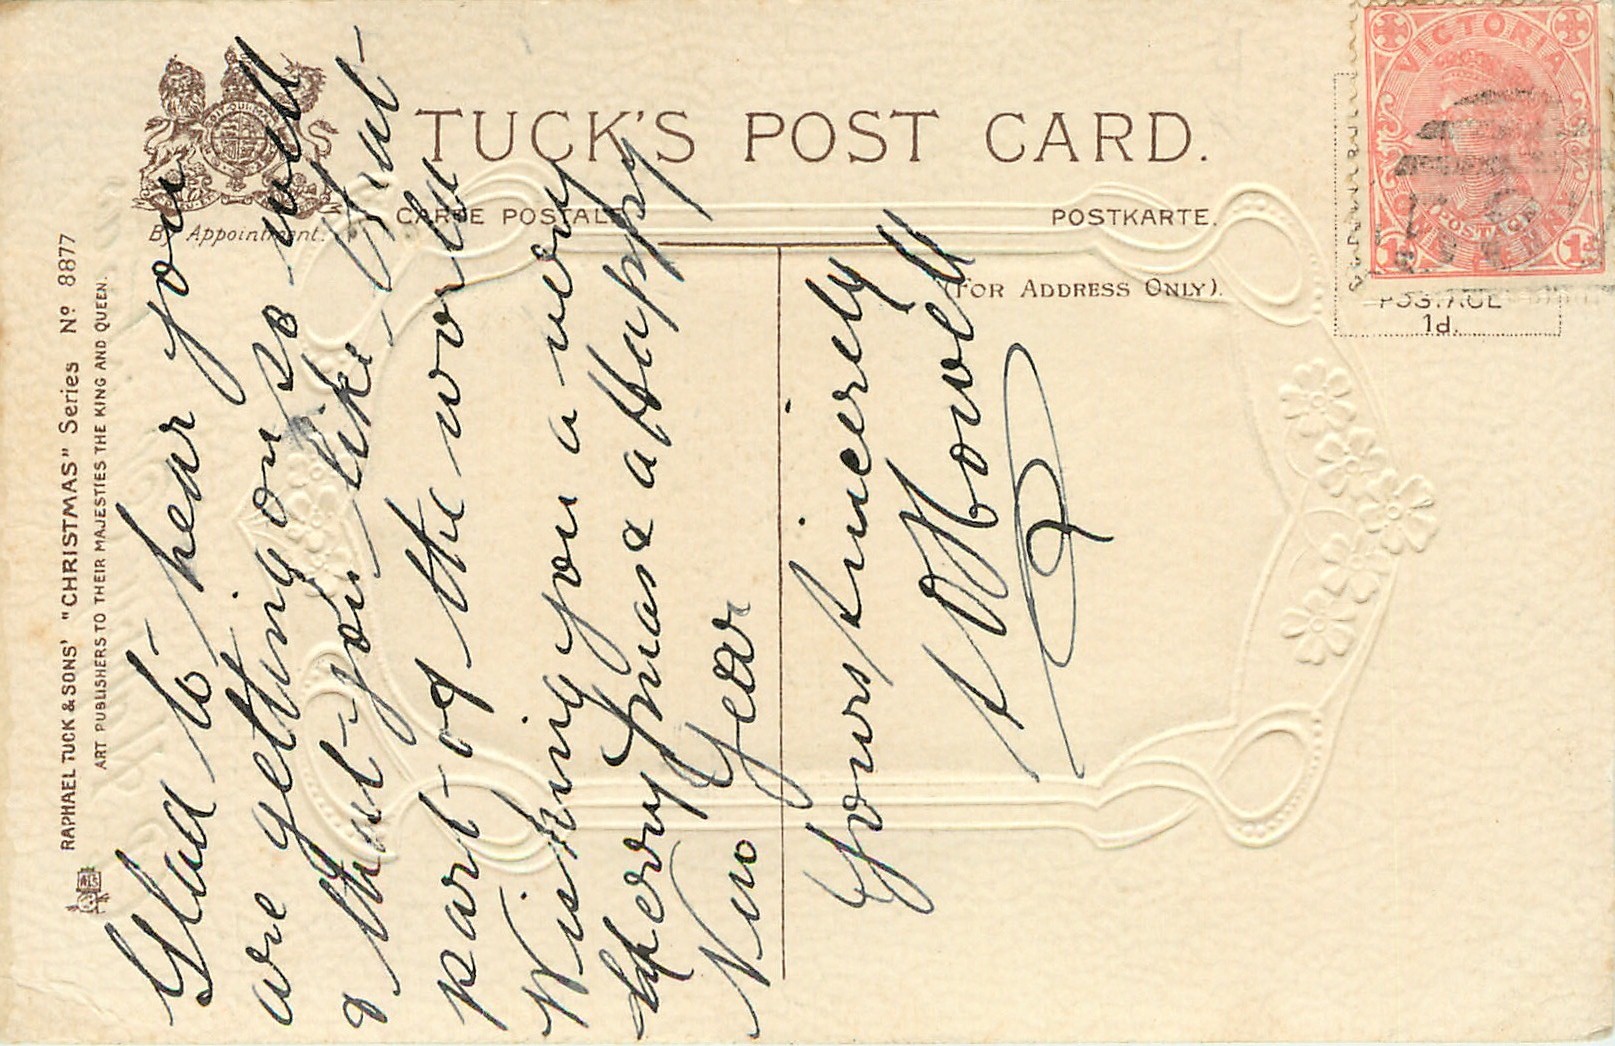 TUCK'S POST CARD.
CARTE POSTALE
POSTKARTE.
(FOR ADDRESS ONLY).
By Appointment.
RAPHAEL TUCK & SONS' "CHRISTMAS" Series Nº 8877
ART PUBLISHERS TO THEIR MAJESTIES THE KING AND QUEEN.
VICTORIA
POSTAGE
ONE PENNY
1d
1d
POSTAGE
1d.
Glad to hear you
are getting on so well
& that you like that
part of the world
Wishing you a very
Merry Xmas & a Happy
New Year
Yours sincerely
Howell